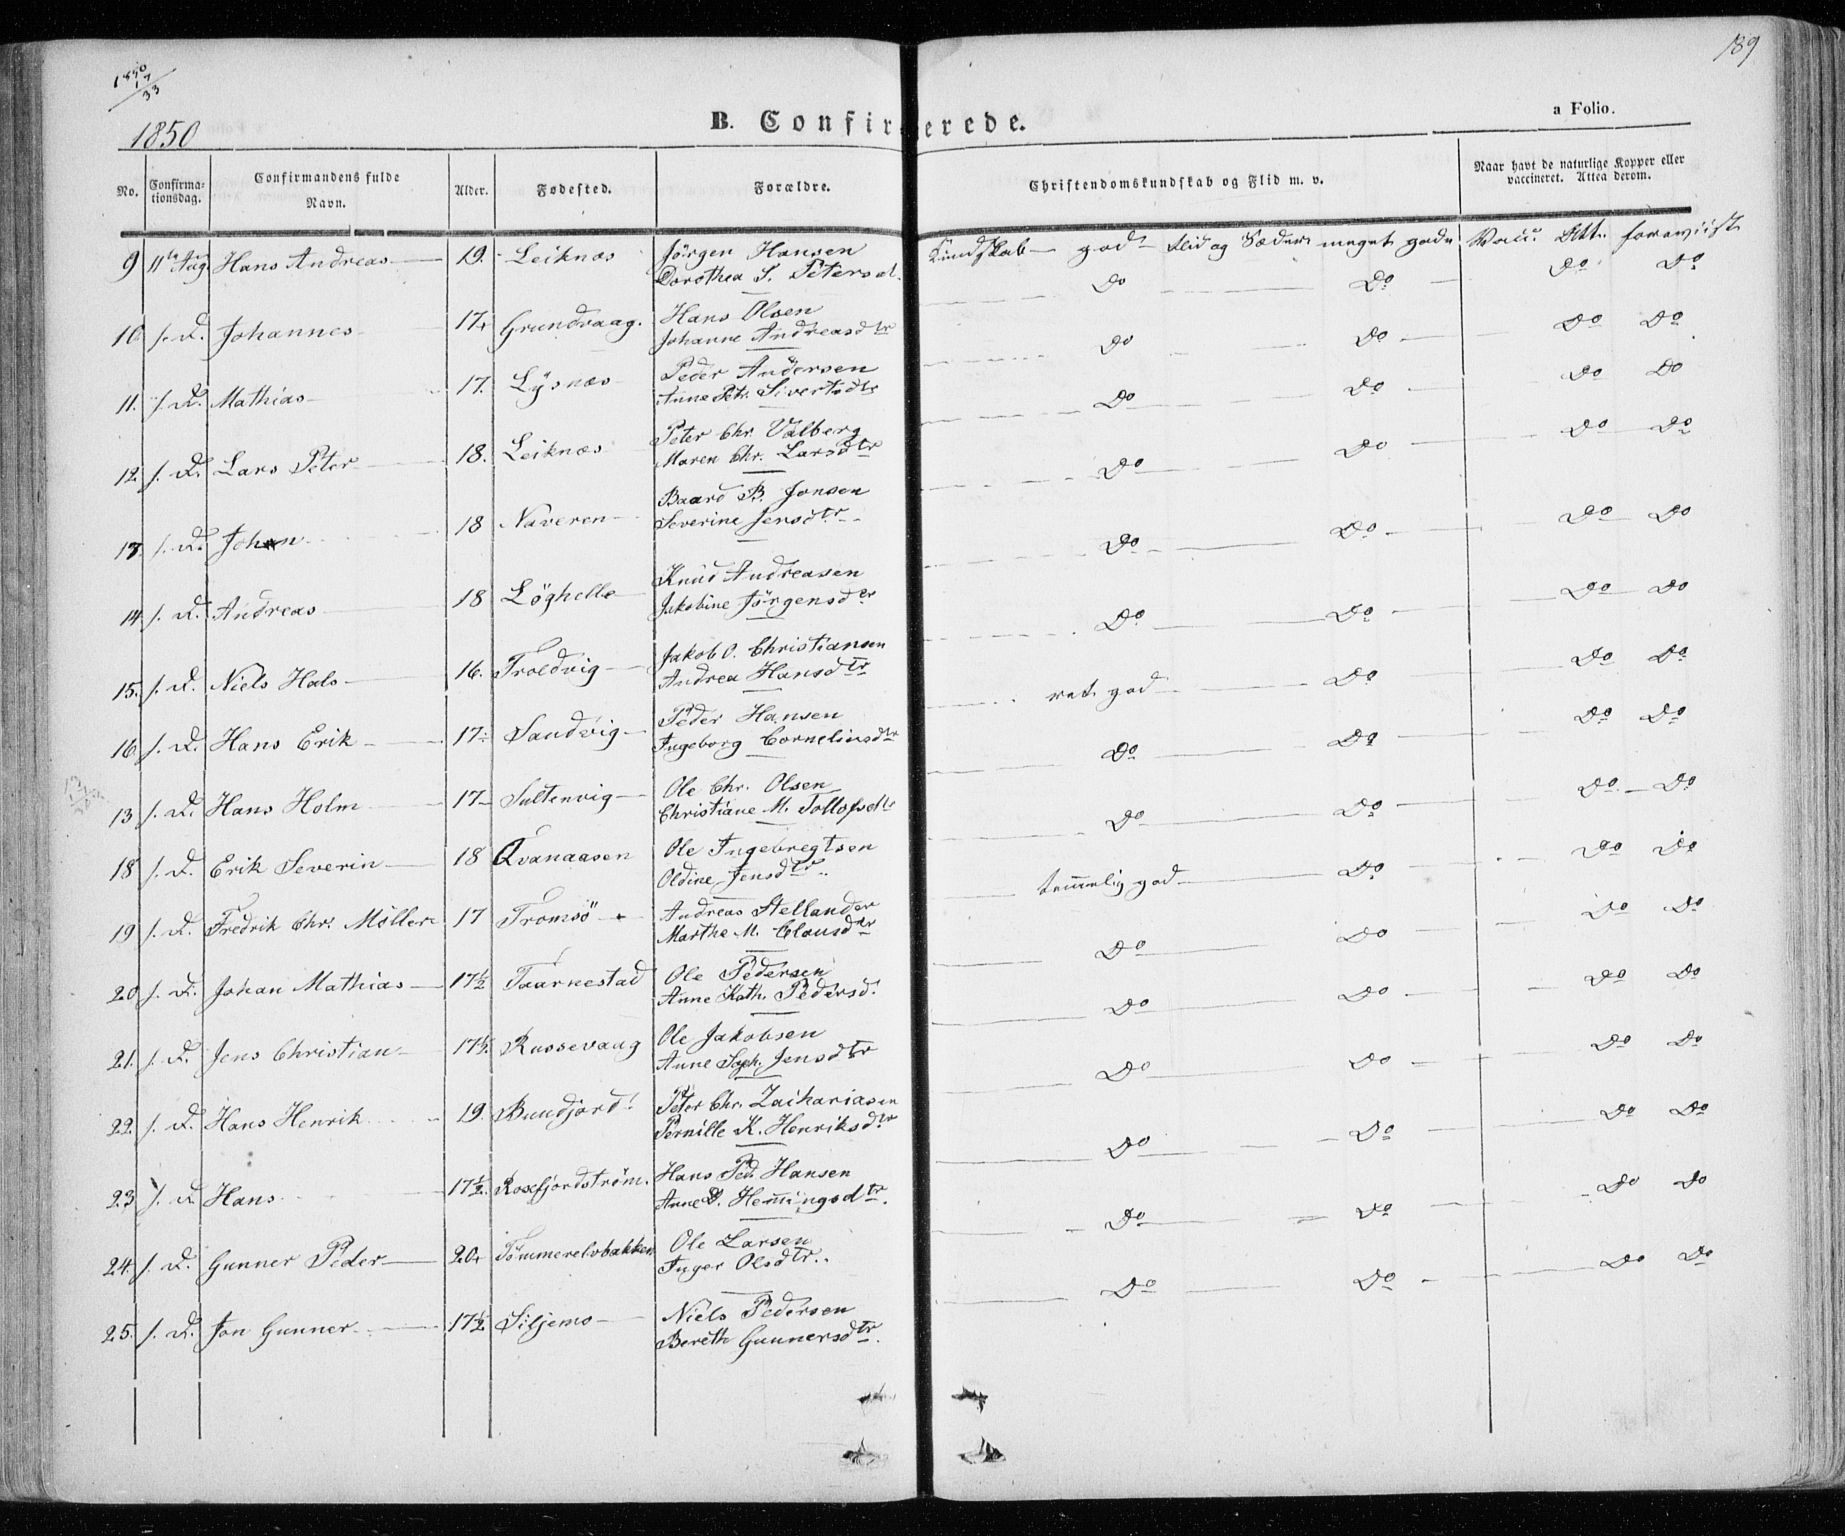 189
1850
17
33
1850
B. Confirmerede.
a Folio.
No. Confirmationsdag. Confirmandens fulde Navn. Alder. Fødested. Forældre. Christendomskundskab og Flid m. v. Naar havt de naturlige Kopper eller vaccineret. Attest derom.
9 11te Aug Hans Andreas 19. Leiknæs Jörgen Hansen Kundskab god Flid og Sæder meget gode Vacc. Att. foreviist
Dorothea S. Petersd.
10 s. D. Johannes 17. Grundvaag. Hans Olsen Do Do Do Do
Johanne Andreasdtr
11. s. D. Mathias 17. Lysnæs Peder Andersen Do Do Do Do
Anne Petr. Sivertsdtr
12. s. D. Lars Peter 18. Leiknæs Peter Chr. Valberg Do Do Do Do
Maren Chr. Larsdtr
13. s. D. Johan 18 Naveren Baard B. Jonsen Do Do Do Do
Severine Jensdtr.
14. s. D. Andreas 18 Löghelle Knud Andreasen Do Do Do Do
Jakobine Jörgensdtr
15. s. D. Niels Hals 16. Troldvig Jakob O. Christiansen Do Do Do Do
Andrea Hansdtr
16 s. D. Hans Erik 17. Sandvig Peder Hansen ret god Do Do Do
Ingeborg Corneliusdtr
13 s. D. Hans Holm 17 Sultenvig Ole Chr. Olsen Do Do Do Do
Christiane M. Tollefsdtr
18 s. D. Erik Severin 18 Qvanaasen Ole Ingebregtsen Do Do Do Do
Oldine Jensdtr.
19 s. D. Fredrik Chr. Möller 17 Tromsö Andreas Stellander temmelig god Do Do Do
Marthe M. Clausdtr
20 s. D. Johan Mathias 17½ Taarnestad Ole Pedersen Do Do Do Do
Anne Kath. Pedersd.
21. s. D. Jens Christian 17½ Russevaag Ole Jakobsen Do Do Do Do
Anne Soph. Jensdtr
22. s. D. Hans Henrik 19. Bundjord Peter Chr. Zachariasen Do Do Do Do
Pernille K. Henriksdtr
23 s. D. Hans 17½ Rossfjordstrøm. Hans Ped. Hansen Do Do Do Do
Anne D. Hem̅ingsdtr.
24. s. D. Gunner Peder 20. Tömmerelvbakken Ole Larsen Do Do Do Do
Inger Olsdtr.
25. s. D. Jon Gunner 17½ Siljemo Niels Pedersen Do Do Do Do
Bereth Gunnersdtr.